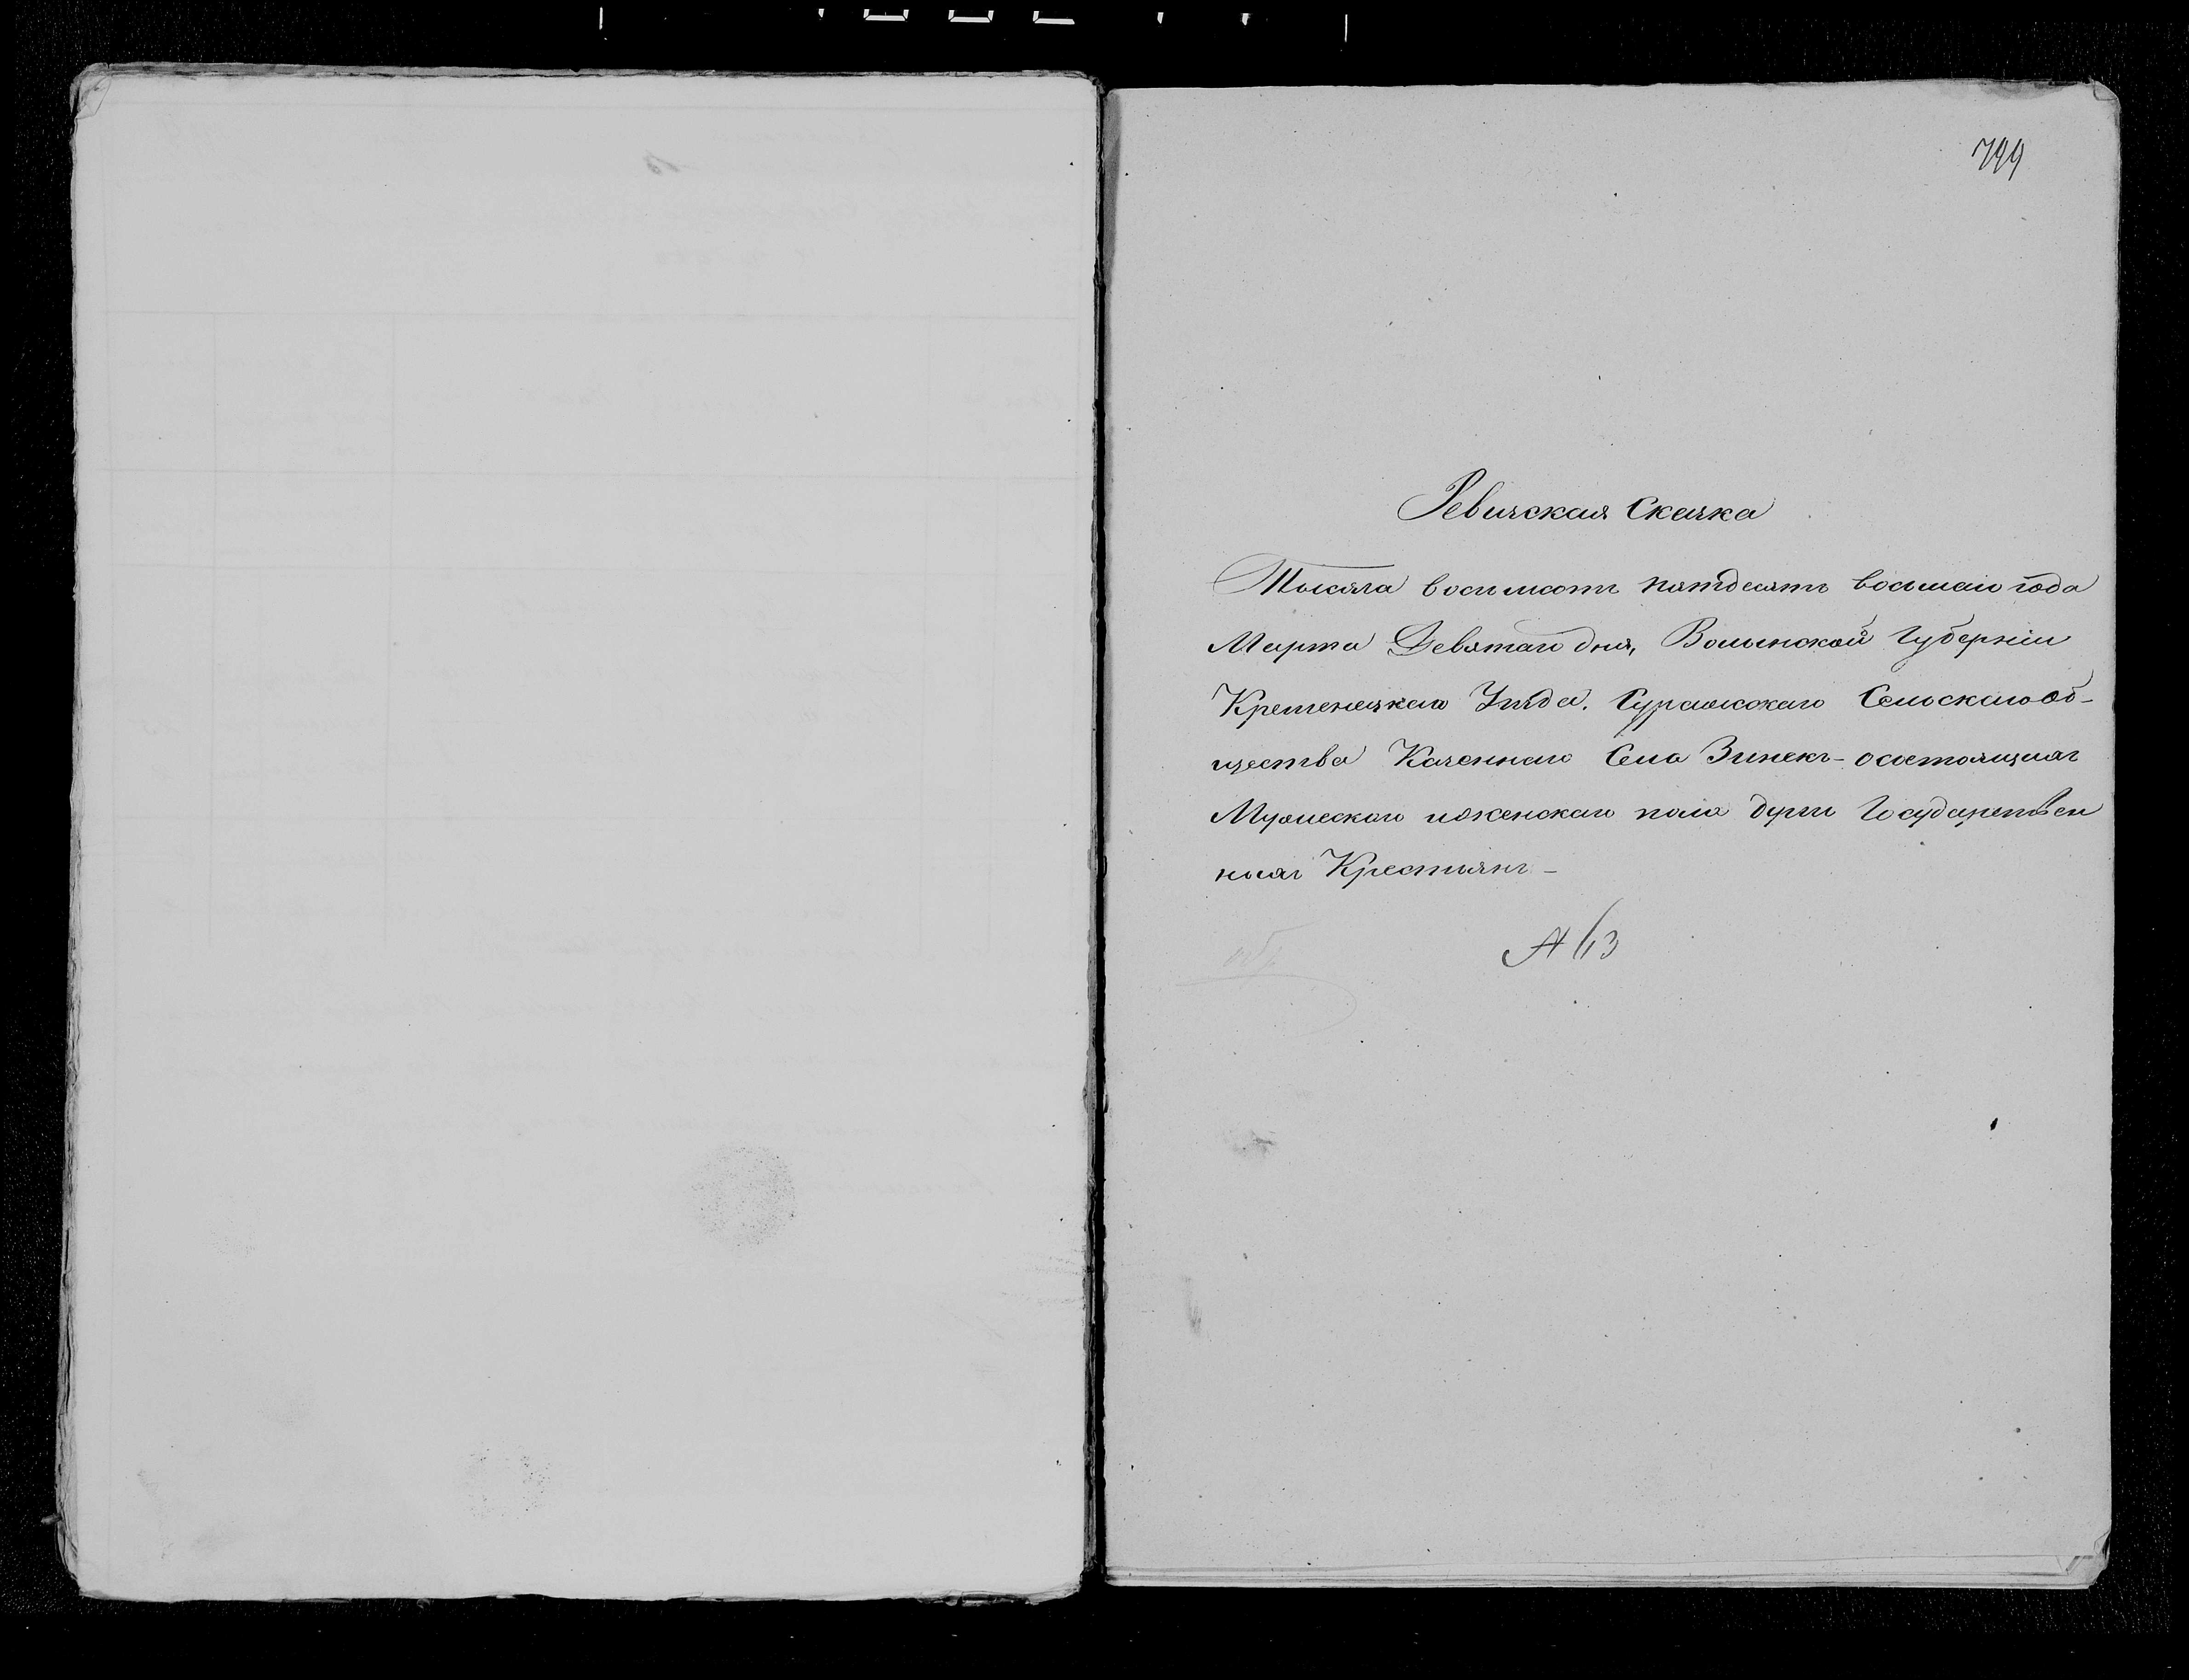 799
Ревизская Сказка
Тысяча восимсотъ пятдесятъ восьмаго года
Марта Девятаго дня, Волынской Губерніи
Кременецкаго Уѣзда. Суражскаго Сельскаго Об-
щества Казеннаго Села Зинекъ - осостоящихъ
Мужескаго иженскаго пола душъ Государствен
ныхъ Крестьянъ -